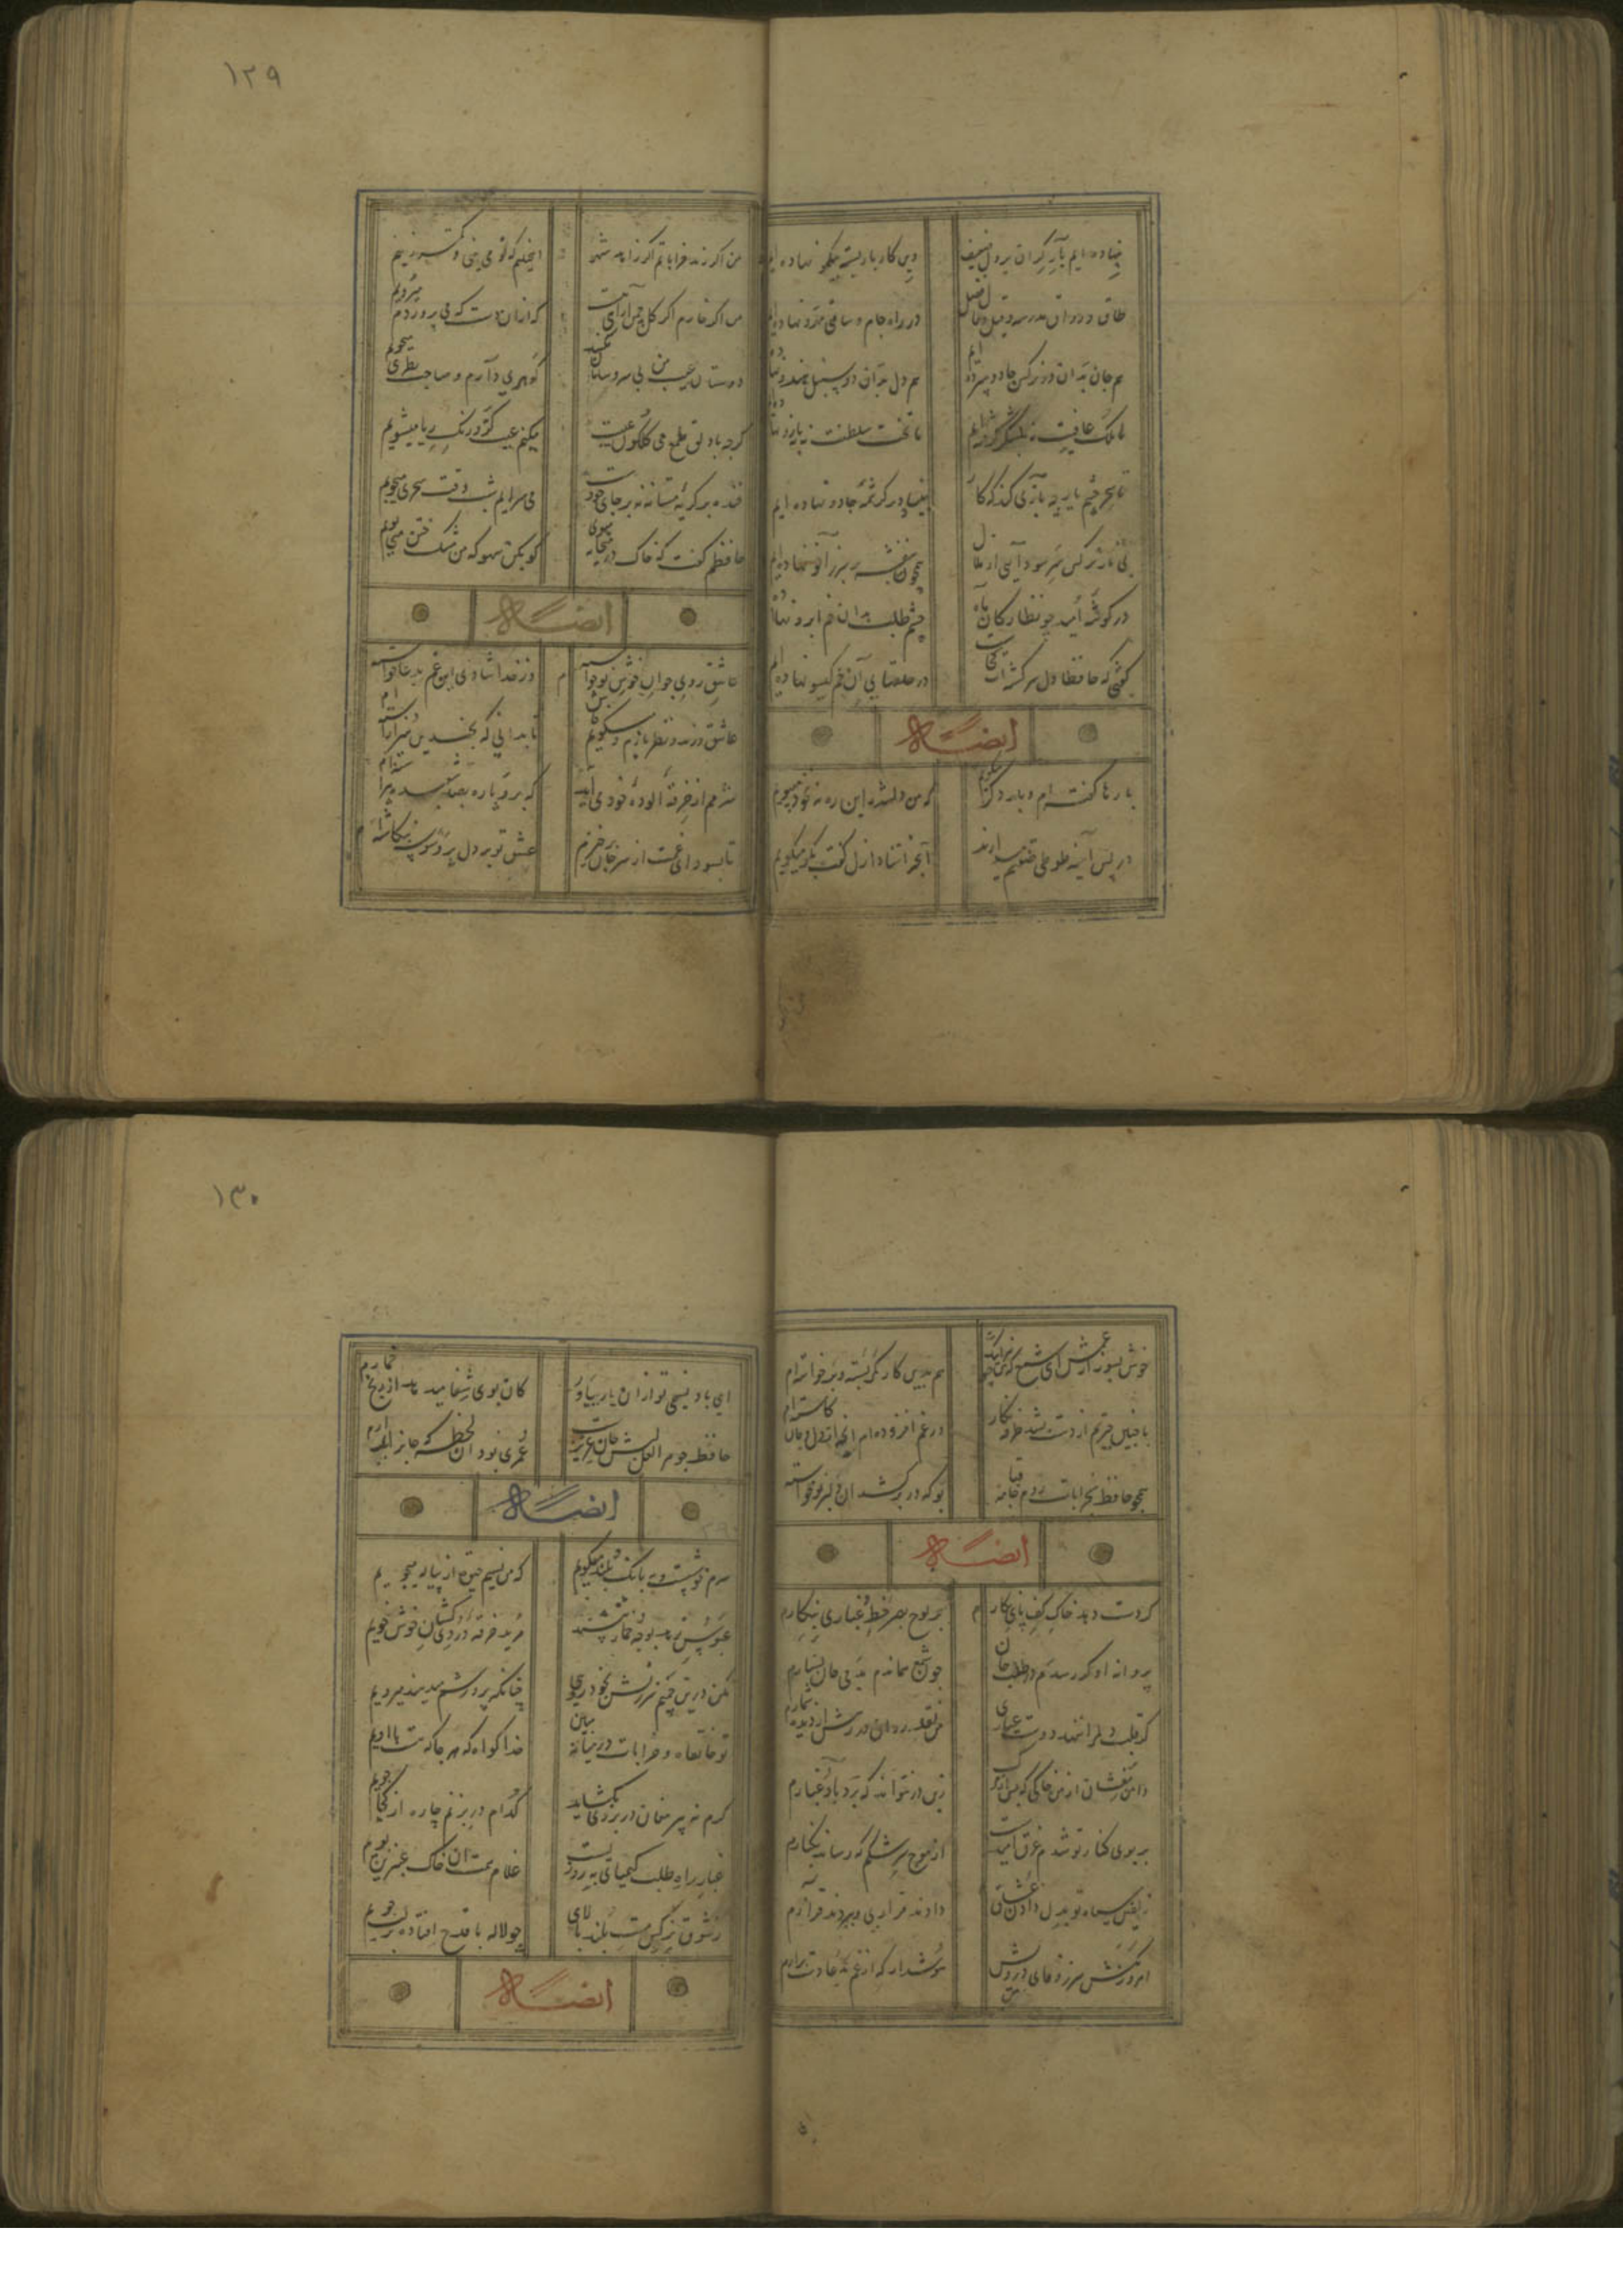 ۱۲۹
بنهاده‌ایم بار گران بر دل ضعیف
وین کار و بار بسته بیکمو نهاده‌ایم
طاق و رواق مدرسه و قیل و قال فضل
در راه جام و ساقی مهرو نهاده‌ایم
هم جان بدان دو نرگس جادو سپرده‌ایم
هم دل بدان دو سنبل هندو نهاده‌ایم
ما ملک عافیت نه بلشکر گرفته‌ایم
ما تخت سلطنت نه ببازو نهاده‌ایم
تا سحر چشم یار چه بازی کند که کار
بنیاد بر کرشمه جادو نهاده ایم
بی ناز نرگس سر سودایی از ملال
همچون بنفشه بر سر زانو نهاده‌ایم
در گوشه امید چو نظارگان ماه
چشم طلب بدان خم ابرو نهاده
گفتی که حافظا دل سرگشته‌ات کجاست
در حلقهای آن خم گیسو نهاده‌ایم
ایضاً له
بارها گفته‌ام و بار دگر میگویم
که من دلشده این ره نه بخود میپویم
در پس آینه طوطی صفتم میدارند
آنچ استاد ازل گفت بگو میگویم
من اگر رند خراباتم اگر زاهد شهر
اینچنینم که تو می بینی و کمتر زینم
من اگر خارم اگر گل چمن آرایی هست
که از آن دست که می پروردم میرویم
دوستان عیب من بی سر و سامان مکنید
گوهری دارم و صاحب نظری میجویم
گرچه با دلق ملمع می گلگون عیبست
میکنم عیب کزو رنگ ریا میشویم
خنده بر گریه مستانه نه بر جای خودست
می سرایم بشب و وقت سحر می‌جویم
حافظم گفت که خاک در میخانه مبوی
گو مکن سهو که من مشک ختن میبویم
ایضاً له
عاشق روی جوانی خوش نوخواسته‌ام
وز خدا شادی این غم بدعا خواسته‌ام
عاشق و رند و نظربازم و میگویم فاش
تا بدانی که بچندین هنر آراسته‌ام
شرمم از خرقه آلوده خود می‌آید
که برو پاره بصد شعبده پیراسته‌ام
۱۳۰
خوش بسوز از غمش ای شمع که اینک من نیز
هم بدین کار کمر بسته و برخواسته‌ام
با چنین حیرتم از دست بشد صرفه کار
در غم افزوده‌ام آنچ از دل و جان کاسته‌ام
همچو حافظ بخرابات روم جامه قبا
بو که در بر کشد آن دلبر نوخواسته
ایضاً له
گر دست دهد خاک کف پای نگارم
بر لوح بصر خط غباری بنگارم
پروانه او گر رسدم در طلب جان
چون شمع همان دم بدمی جان بسپارم
گر قلب دلم را ننهد دوست عیاری
من نقد روان در رهش از دیده شمارم
دامن مفشان از من خاکی که پس از مرگ
زین در نتواند که برد باد غبارم
بر بوی کنار تو شدم غرق امیدست
از موج سرشکم که رساند بکنارم
زلفین سیاه تو بدل دادن عشاق
دادند قراری و ببردند قرارم
امروز مکش سر ز وفای من و اندیش
ای باد نسیمی تو از آن یار بیاور
کان بوی شفا می‌دهد از رنج خمارم
حافظ چو مرا لعل لبش جان عزیزست
عمری بود آن لحظه که جان را بلب آرم
ایضاً له
سرم خوشست و به بانگ بلند میگویم
که من نسیم حیوة از پیاله میجویم
عبوس زهد بوجه خمار ننشیند
مرید خرقه دردی کشان خوش خویم
مکن درین چمنم سرزنش بخودرویی
چنانکه پرورشم می‌دهند میرویم
تو خانقاه و خرابات در میانه مبین
خدا گواه که هر جا که هست با اویم
گرم نه پیر مغان در بروی بگشاید
کدام در بزنم چاره از کجا جویم
غبار راه طلب کیمیای بهروزیست
غلام همت آن خاک عنبرین بویم
ز شوق نرگس مست بلند بالایی
چو لاله با قدح افتاده بر لب جویم
ایضاً له